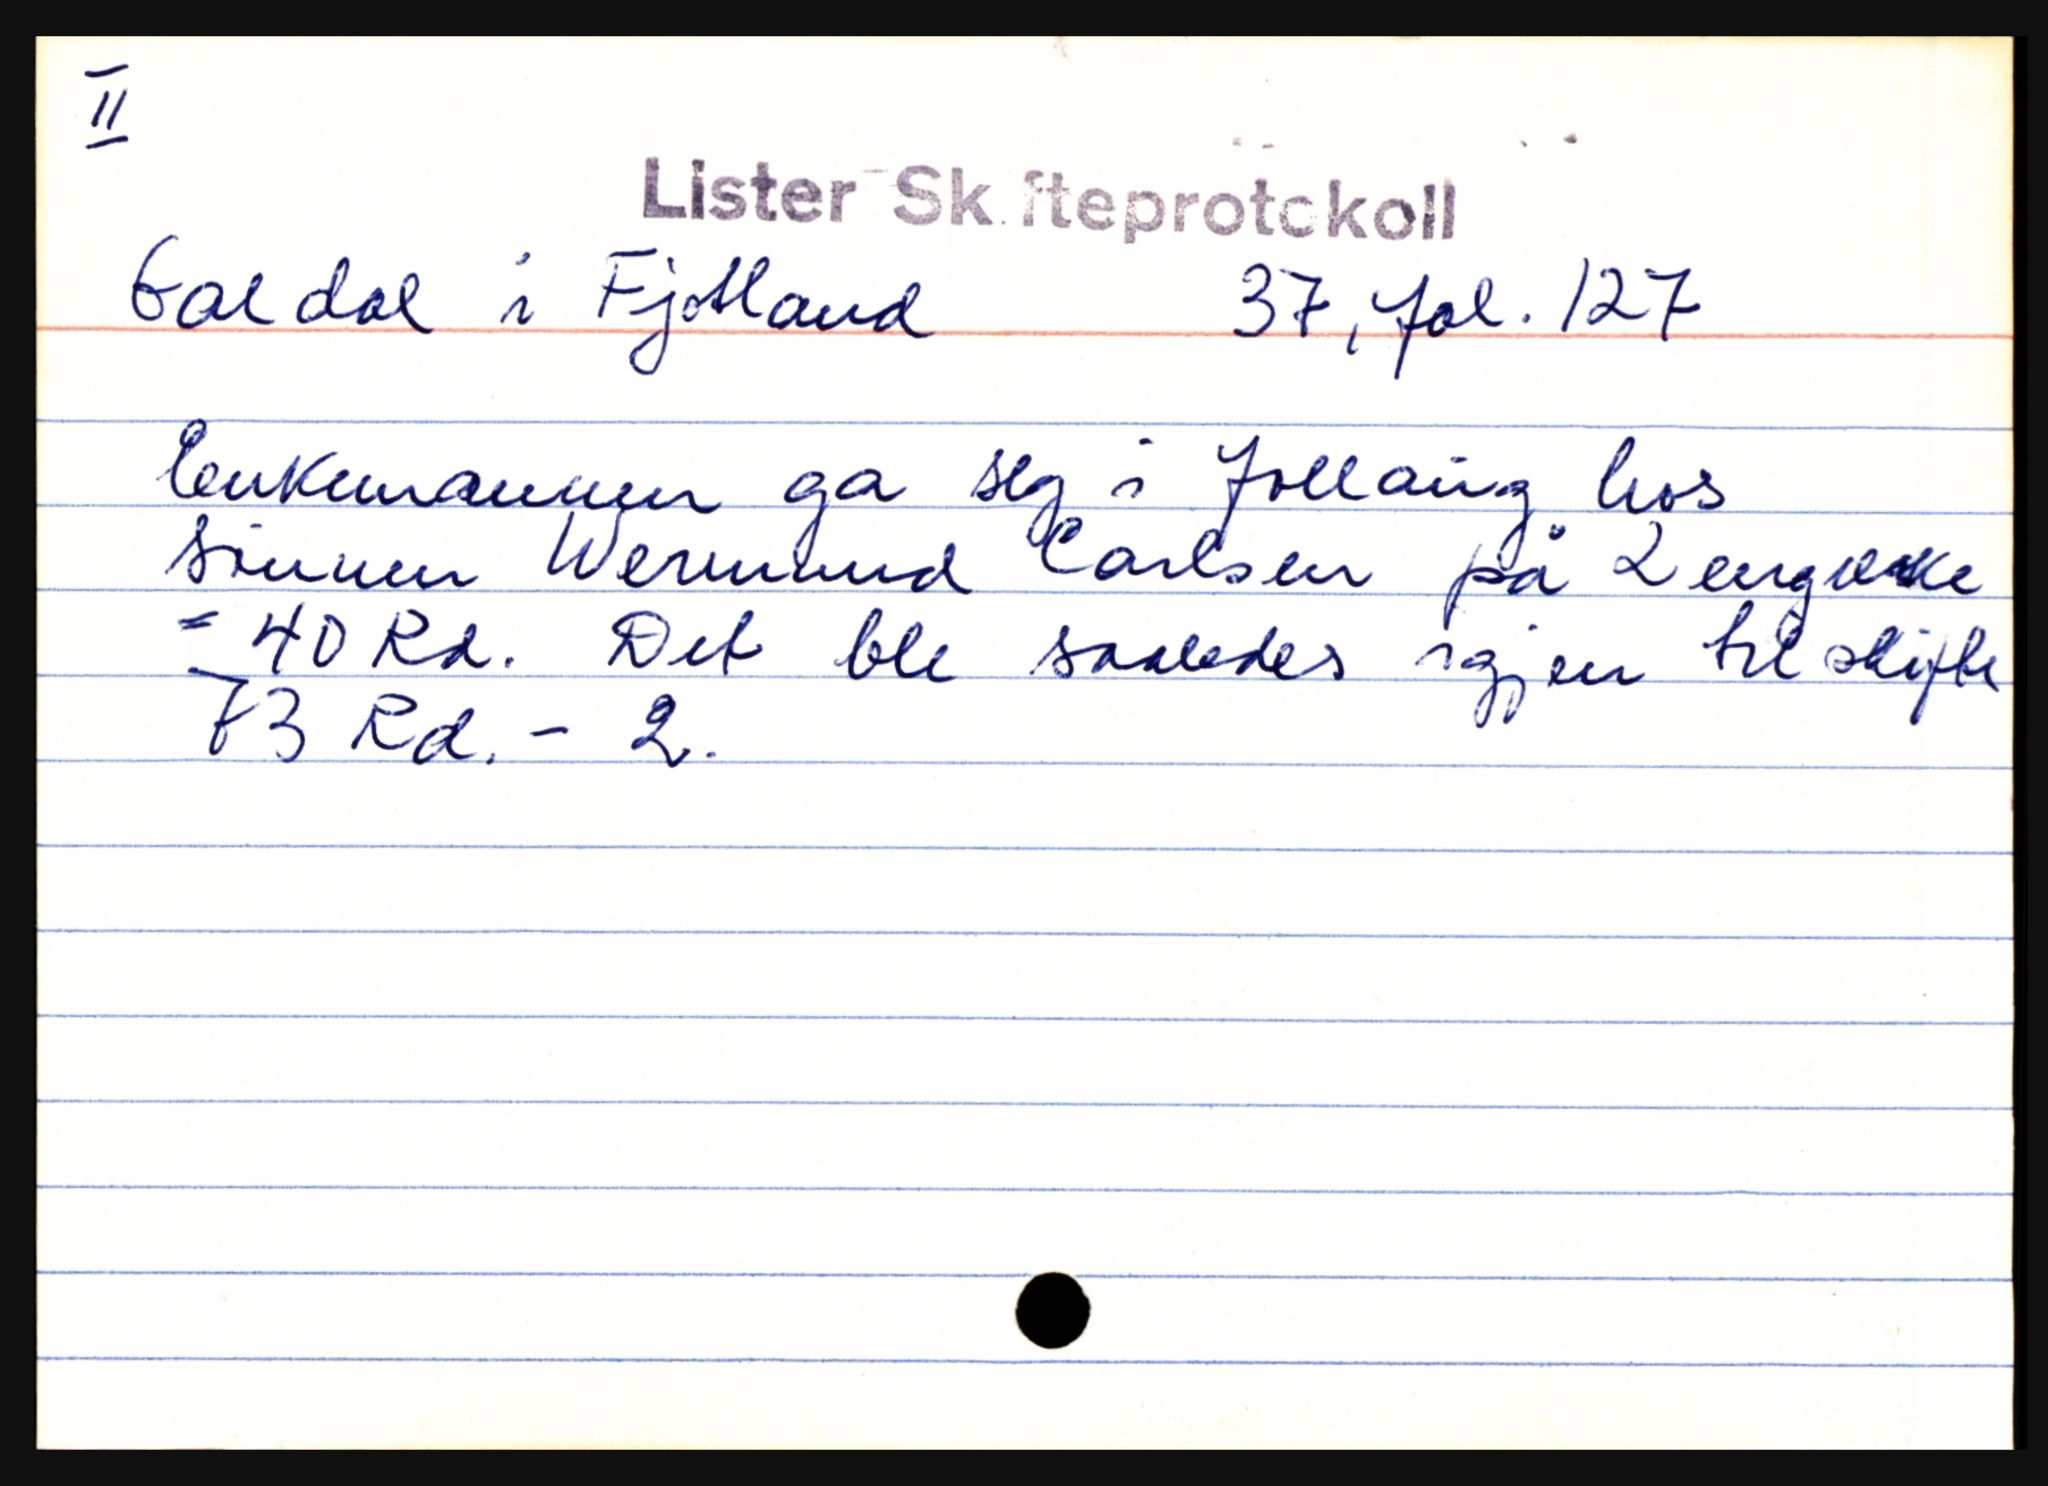 II
Lister Skifteprotokoll
Galdal i Fjotland 37, fol. 127
Enkemannen ga seg i follaug hos
sønnen Wermund Carlsen på 2 engelske
= 40 Rd. Det ble saaledes igjen til skifte
73 Rd. - 2.